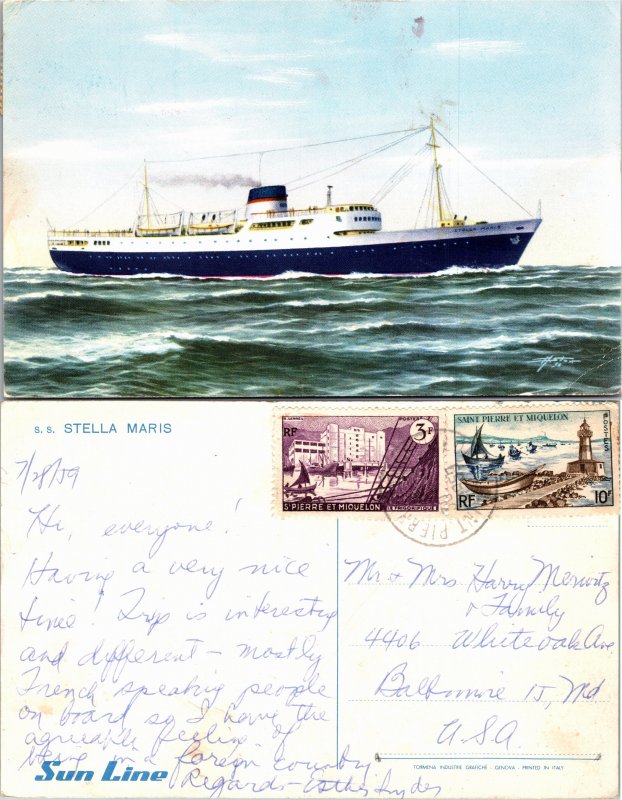 STELLA MARIS
S. S. STELLA MARIS
7/28/59
Hi, everyone!
Having a very nice
time! Trip is interesting
and different - mostly
French speaking people
on board so I have the
agreeable feeling of
being in a foreign country
Regards - Esther Snyder
Sun Line
RF
POSTES
3F
ST PIERRE ET MIQUELON
LE FRIGORIFIQUE
SAINT PIERRE ET MIQUELON
POSTES
RF
10F
ST PIERRE
Mr & Mrs. Harry Merwitz
& Family
4406 Whiteoak Ave
Baltimore 15, Md
U.S.A.
TORMENA INDUSTRIE GRAFICHE - GENOVA - PRINTED IN ITALY